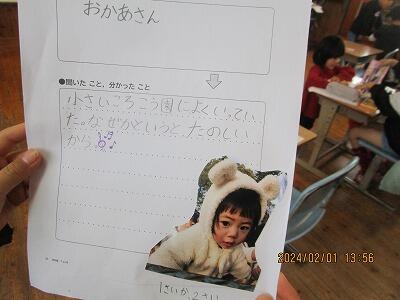 おかあさん
●聞いた こと、分かった こと
小さいころこう園によくいってい
た。なぜかというと、たのしい
から。
1さいか、2さい
2024/02/01 13:56